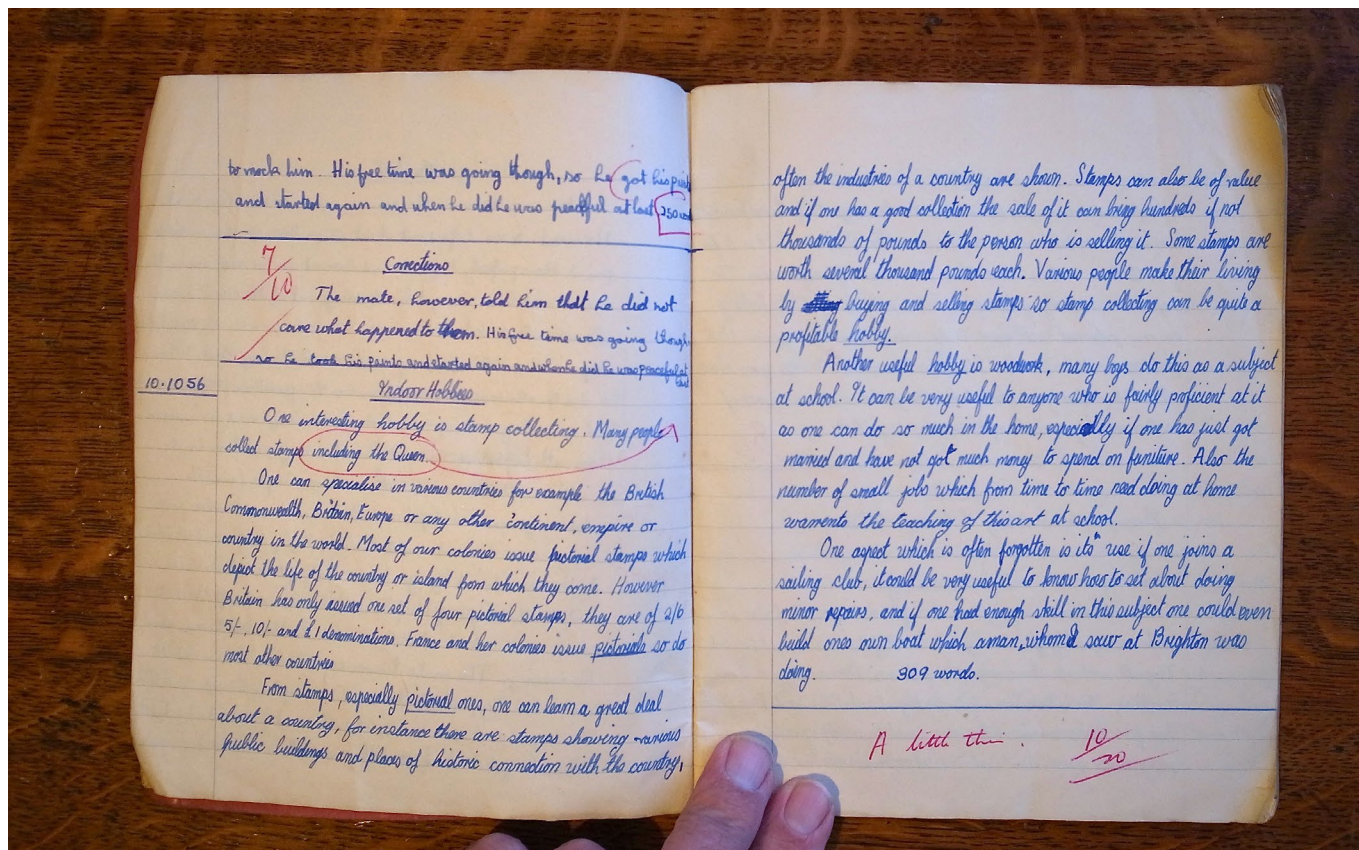 to mock him. His free time was going though, so he got his paint
and started again and when he did he was peacful at last 250 wds
7/10
Corrections
The mate, however, told him that he did not
care what happened to them. His free time was going though,
so he took his paints and started again and when he did he was peaceful at
last
10.1056
Indoor Hobbees
One interesting hobby is stamp collecting. Many people
collect stamps including the Queen.
One can specialise in various countries for example the British
Commonwealth, Britain, Europe or any other continent, empire or
country in the world. Most of our colonies issue pictorial stamps which
depict the life of the country or island from which they come. However
Britain has only issued one set of four pictorial stamps, they are of 2/6
5/-, 10/- and £1 denominations. France and her colonies issue pictorials so do
most other countries
From stamps, especially pictorial ones, one can learn a great deal
about a country, for instance there are stamps showing various
public buildings and places of historic connection with the country,
often the industries of a country are shown. Stamps can also be of value
and if one has a good collection the sale of it can bring hundreds if not
thousands of pounds to the person who is selling it. Some stamps are
worth several thousand pounds each. Various people make their living
by buying and selling stamps so stamp collecting can be quite a
profitable hobby.
Another useful hobby is woodwork, many boys do this as a subject
at school. It can be very useful to anyone who is fairly proficient at it
as one can do so much in the home, especially if one has just got
married and have not got much money to spend on funiture. Also the
number of small jobs which from time to time need doing at home
warrents the teaching of this art at school.
One aspect which is often forgotten is its" use if one joins a
sailing club, it could be very useful to know how to set about doing
minor repairs, and if one had enough skill in this subject one could even
build ones own boat which a man, whom I saw at Brighton was
doing. 309 words.
A little thin. 10/20